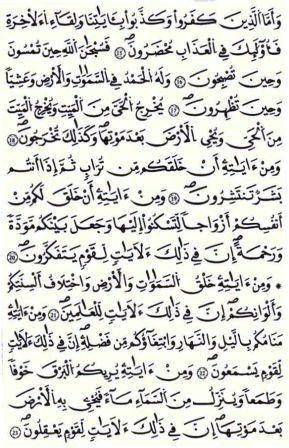 وَأَمَّا الَّذِينَ كَفَرُوا وَكَذَّبُوا بِـَٔايَٰتِنَا وَلِقَآءِ الْءَاخِرَةِ
فَأُوْلَٰٓئِكَ فِي الْعَذَابِ مُحْضَرُونَ ١٥ فَسُبْحَٰنَ اللَّهِ حِينَ تُمْسُونَ
وَحِينَ تُصْبِحُونَ ١٦ وَلَهُ الْحَمْدُ فِي السَّمَٰوَٰتِ وَالْأَرْضِ وَعَشِيًّا
وَحِينَ تُظْهِرُونَ ١٧ يُخْرِجُ الْحَيَّ مِنَ الْمَيِّتِ وَيُخْرِجُ الْمَيِّتَ
مِنَ الْحَيِّ وَيُحْيِ الْأَرْضَ بَعْدَ مَوْتِهَا وَكَذَٰلِكَ تُخْرَجُونَ ١٨
وَمِنْ ءَايَٰتِهِ أَنْ خَلَقَكُم مِّن تُرَابٍ ثُمَّ إِذَا أَنتُم
بَشَرٌ تَنتَشِرُونَ ١٩ وَمِنْ ءَايَٰتِهِ أَنْ خَلَقَ لَكُم مِّنْ
أَنفُسِكُمْ أَزْوَاجًا لِّتَسْكُنُوا إِلَيْهَا وَجَعَلَ بَيْنَكُم مَّوَدَّةً
وَرَحْمَةً إِنَّ فِي ذَٰلِكَ لَءَايَٰتٍ لِّقَوْمٍ يَتَفَكَّرُونَ ٢٠
* وَمِنْ ءَايَٰتِهِ خَلْقُ السَّمَٰوَٰتِ وَالْأَرْضِ وَاخْتِلَٰفُ أَلْسِنَتِكُمْ
وَأَلْوَٰنِكُمْ إِنَّ فِي ذَٰلِكَ لَءَايَٰتٍ لِّلْعَٰلَمِينَ ٢١ وَمِنْ ءَايَٰتِهِ
مَنَامُكُم بِالَّيْلِ وَالنَّهَارِ وَابْتِغَآؤُكُم مِّن فَضْلِهِ إِنَّ فِي ذَٰلِكَ لَءَايَٰتٍ
لِّقَوْمٍ يَسْمَعُونَ ٢٢ وَمِنْ ءَايَٰتِهِ يُرِيكُمُ الْبَرْقَ خَوْفًا
وَطَمَعًا وَيُنَزِّلُ مِنَ السَّمَآءِ مَآءً فَيُحْيِ بِهِ الْأَرْضَ
بَعْدَ مَوْتِهَا إِنَّ فِي ذَٰلِكَ لَءَايَٰتٍ لِّقَوْمٍ يَعْقِلُونَ ٢٣